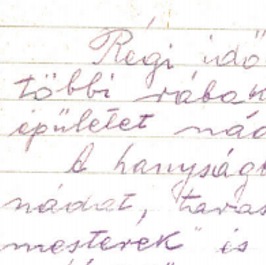 Régi idő
többi rában
épületet nád
A hanyság
nádat, taras
mesterek" is